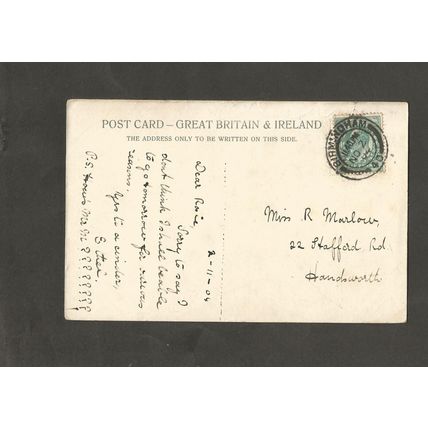 POST CARD – GREAT BRITAIN & IRELAND
THE ADDRESS ONLY TO BE WRITTEN ON THIS SIDE.
BIRMINGHAM
2-11-04
Dear Rosie,
Sorry to say I
don't think I shall be able
to go tomorrow for various
reasons.
Yrs to a cinder,
Ethel
P.S. Mr M ? ? ? ? ? ? ? ?
Miss R Marlow,
22 Stafford Rd
Handsworth